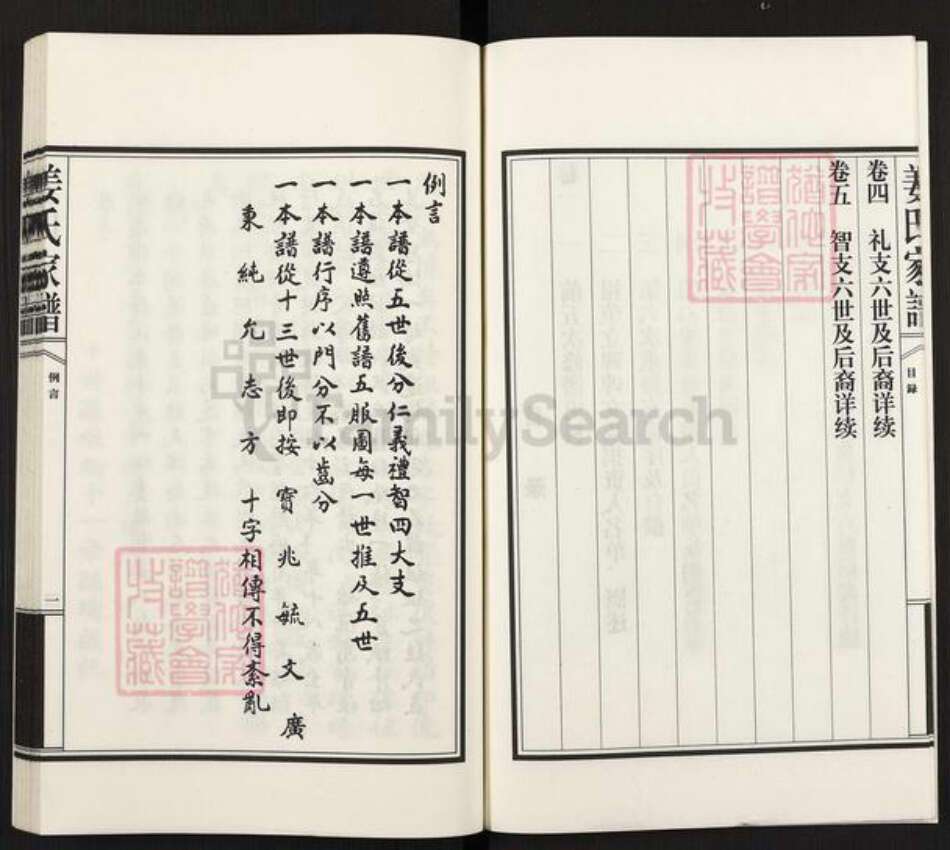 姜氏家譜
目録
卷四 礼支六世及后裔详续
卷五 智支六世及后裔详续
例言
一本譜從五世後分仁義禮智四大支
一本譜遵照舊譜五服圖每一世推及五世
一本譜行序以門分不以齒分
一本譜從十三世後即按 寶 兆 毓 文 廣
秉 純 允 志 方 十字相傳不得紊亂
姜氏家譜
例言
一
FamilySearch